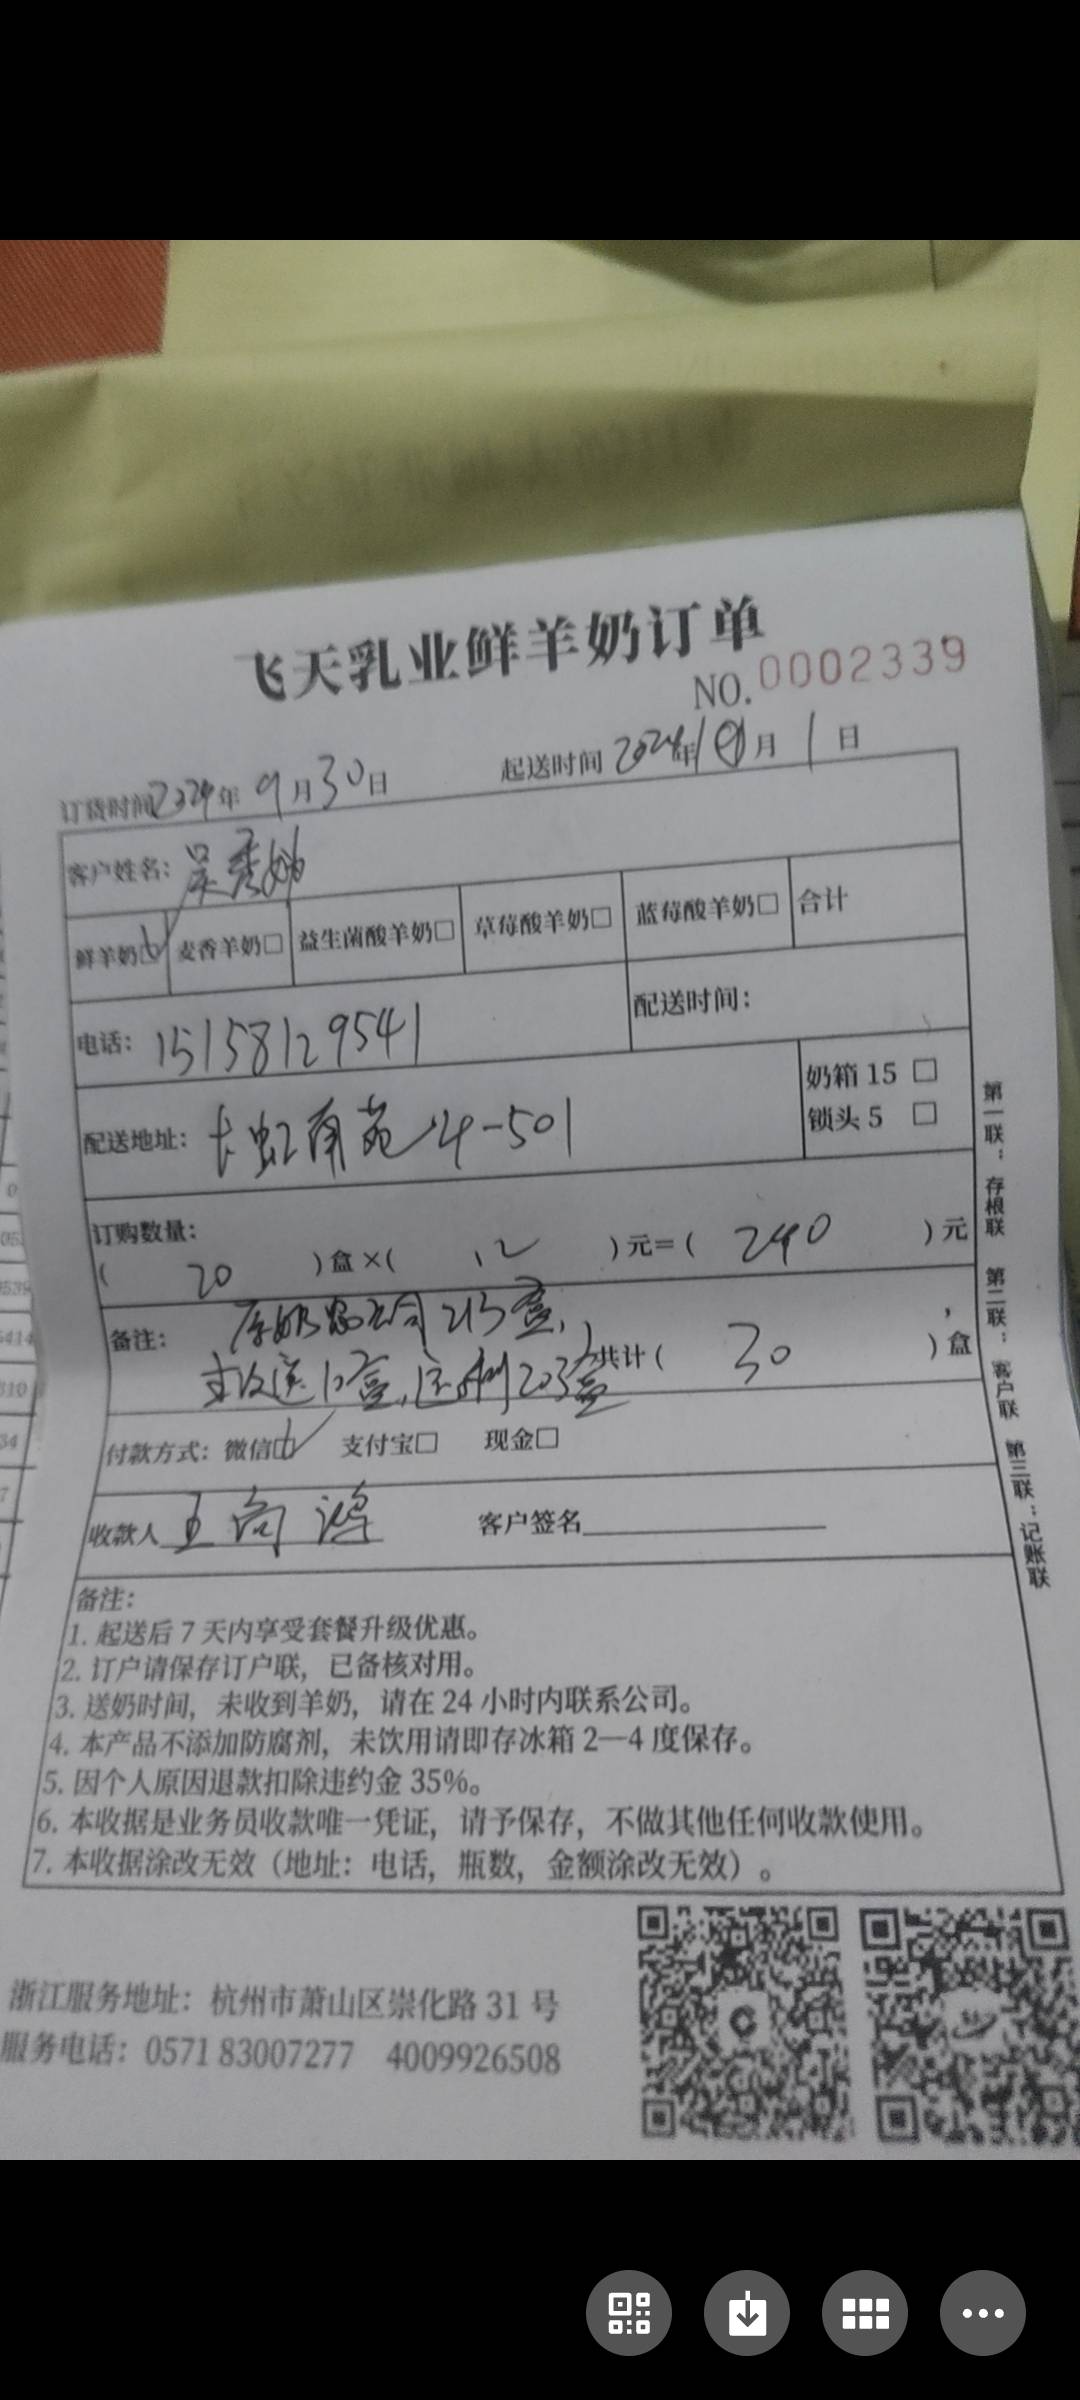 飞天乳业鲜羊奶订单
NO.0002339
订货时间2024年9月30日 起送时间2024年10月1日
客户姓名：吴秀
鲜羊奶☑ 麦香羊奶□ 益生菌酸羊奶□ 草莓酸羊奶□ 蓝莓酸羊奶□ 合计
电话：15158129541 配送时间：
配送地址：长虹南苑 4-501
奶箱 15 □
锁头 5 □
订购数量：
( 20 )盒×( 12 )元=( 240 )元
备注： 213盒,
本次送10盒, 203盒 共计( 30 )盒
付款方式：微信☑ 支付宝□ 现金□
收款人 王向鸿 客户签名
备注：
1. 起送后 7 天内享受套餐升级优惠。
2. 订户请保存订户联，已备核对用。
3. 送奶时间，未收到羊奶，请在 24 小时内联系公司。
4. 本产品不添加防腐剂，未饮用请即存冰箱 2—4 度保存。
5. 因个人原因退款扣除违约金 35%。
6. 本收据是业务员收款唯一凭证，请予保存，不做其他任何收款使用。
7. 本收据涂改无效（地址：电话，瓶数，金额涂改无效）。
第一联：存根联 第二联：客户联 第三联：记账联
浙江服务地址：杭州市萧山区崇化路 31 号
服务电话：0571 83007277 4009926508